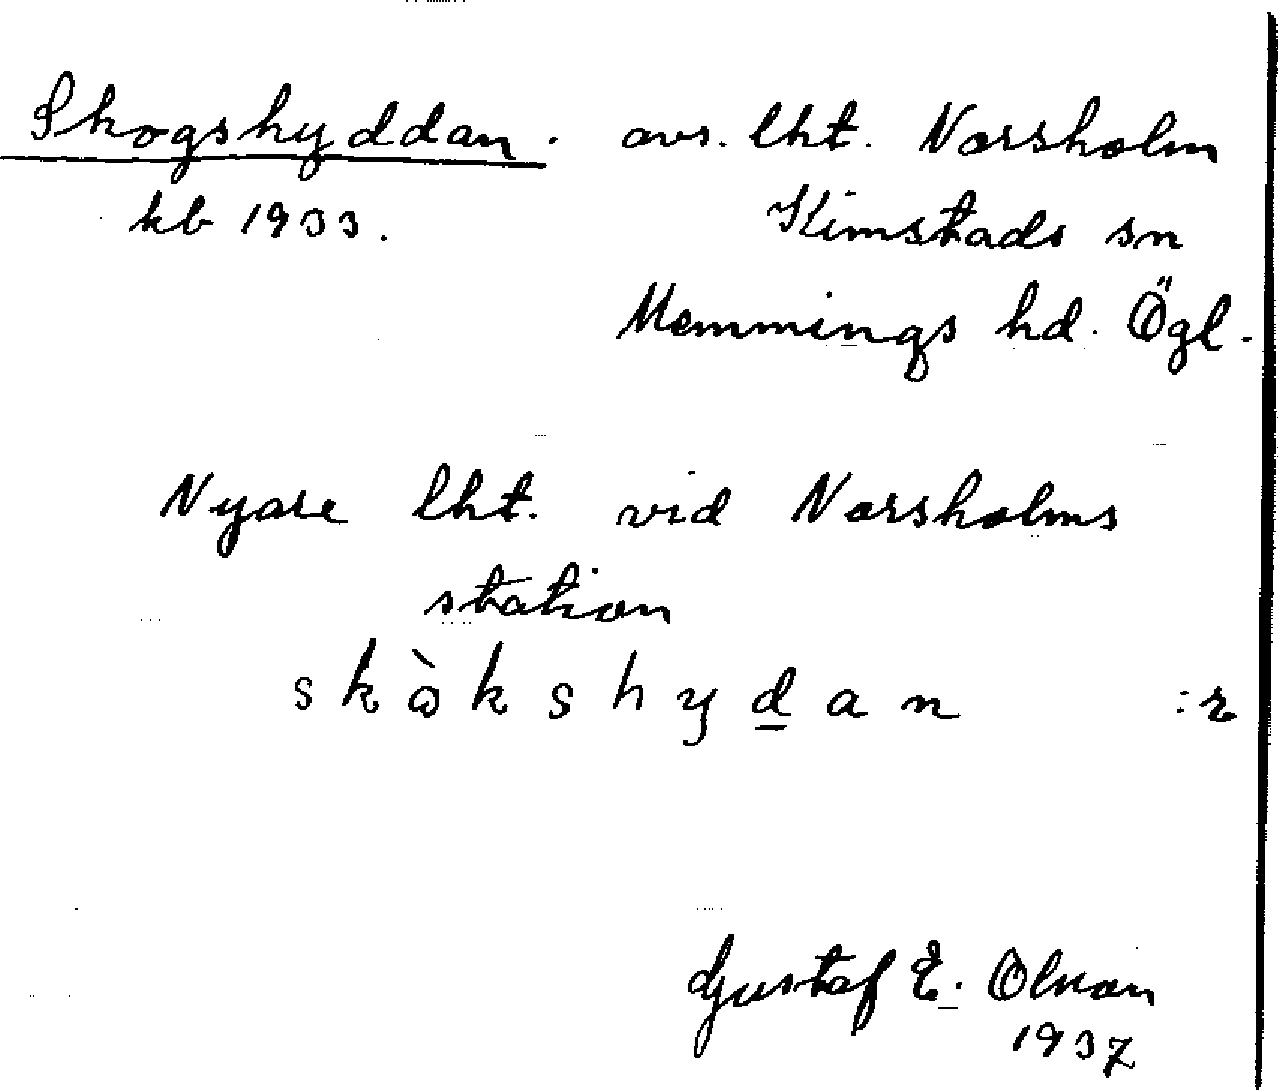 Skogshyddan. avs. lht. Norsholm
kb 1933. Kimstads sn
Memmings hd. Ögl.
Nyare lht. vid Norsholms
station
skò̰kshyd̲an :r
Gustaf E. Olson
1937